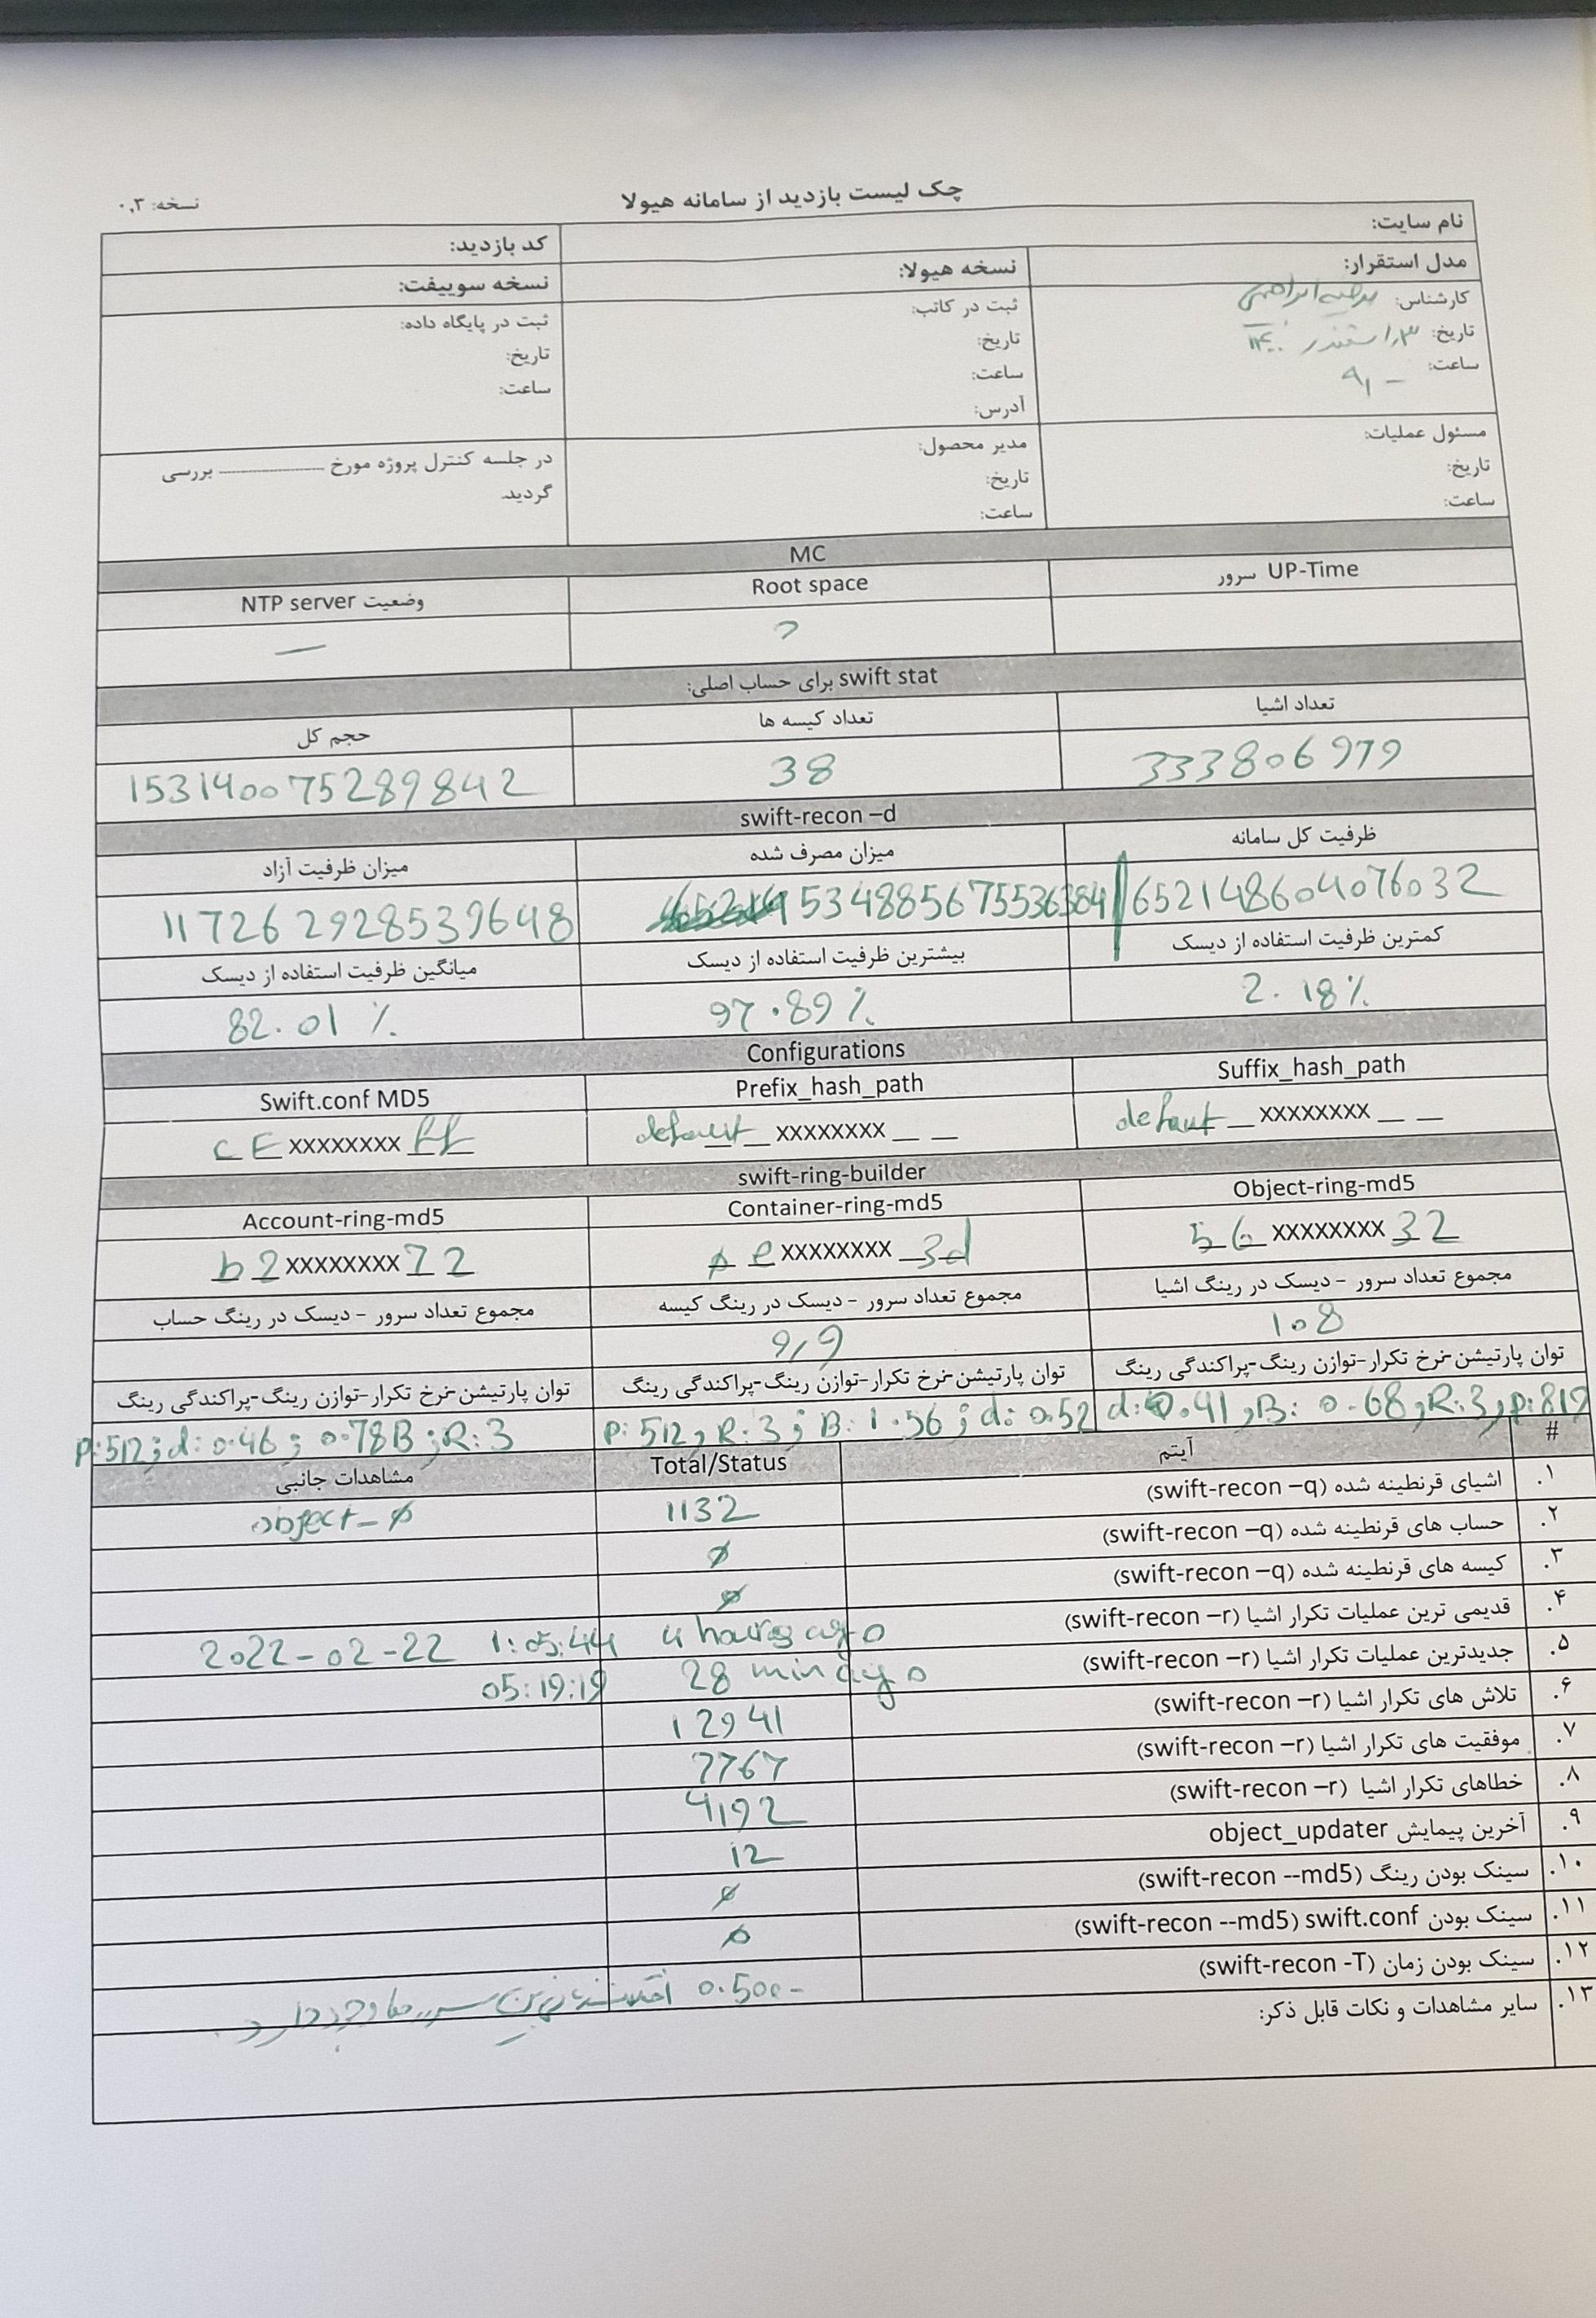 چک لیست بازدید از سامانه هیولا
نسخه: ۰٫۳
نام سایت:
کد بازدید:
مدل استقرار:
نسخه هیولا:
نسخه سوییفت:
کارشناس: مرضیه ابراهیمی
تاریخ: ۳ اسفند ۱۴۰۰
ساعت:
ثبت در کاتب:
تاریخ:
ساعت:
آدرس:
ثبت در پایگاه داده:
تاریخ:
ساعت:
مسئول عملیات:
تاریخ:
ساعت:
مدیر محصول:
تاریخ:
ساعت:
در جلسه کنترل پروژه مورخ ---------- بررسی
گردید.
MC
UP-Time سرور
Root space
وضعیت NTP server
?
—
swift stat برای حساب اصلی:
تعداد اشیا
تعداد کیسه ها
حجم کل
333806979
38
153140075289842
swift-recon –d
ظرفیت کل سامانه
میزان مصرف شده
میزان ظرفیت آزاد
652148604076032
534885675536384
117262928539648
کمترین ظرفیت استفاده از دیسک
بیشترین ظرفیت استفاده از دیسک
میانگین ظرفیت استفاده از دیسک
2.18%
97.89%
82.01%
Configurations
Suffix_hash_path
Prefix_hash_path
Swift.conf MD5
default _ xxxxxxxx _ _
default _ xxxxxxxx _ _
CE xxxxxxxx
swift-ring-builder
Object-ring-md5
Container-ring-md5
Account-ring-md5
56 xxxxxxxx 32
e xxxxxxxx 3d
b2 xxxxxxxx 72
مجموع تعداد سرور – دیسک در رینگ اشیا
مجموع تعداد سرور – دیسک در رینگ کیسه
مجموع تعداد سرور – دیسک در رینگ حساب
108
9,9
توان پارتیشن-نرخ تکرار-توازن رینگ-پراکندگی رینگ
توان پارتیشن-نرخ تکرار-توازن رینگ-پراکندگی رینگ
توان پارتیشن-نرخ تکرار-توازن رینگ-پراکندگی رینگ
d:0.41, B: 0.68, R:3, p:819
p: 512, R:3; B: 1.56; d: 0.52
p:512; d: 0.46; 0.78B; R:3
#
آیتم
Total/Status
مشاهدات جانبی
۱. اشیای قرنطینه شده (swift-recon –q) 1132 object_ø
۲. حساب های قرنطینه شده (swift-recon –q) ø
۳. کیسه های قرنطینه شده (swift-recon –q) ø
۴. قدیمی ترین عملیات تکرار اشیا (swift-recon –r) 4 hours ago 2022-02-22 1:05:44
۵. جدیدترین عملیات تکرار اشیا (swift-recon –r) 28 min ago 05:19:19
۶. تلاش های تکرار اشیا (swift-recon –r) 12941
۷. موفقیت های تکرار اشیا (swift-recon –r) 7767
۸. خطاهای تکرار اشیا (swift-recon –r) 4192
۹. آخرین پیمایش object_updater 12
۱۰. سینک بودن رینگ (swift-recon --md5) ø
۱۱. سینک بودن swift.conf (swift-recon --md5) ø
۱۲. سینک بودن زمان (swift-recon -T) 0.500 وجود دارد.
۱۳. سایر مشاهدات و نکات قابل ذکر: